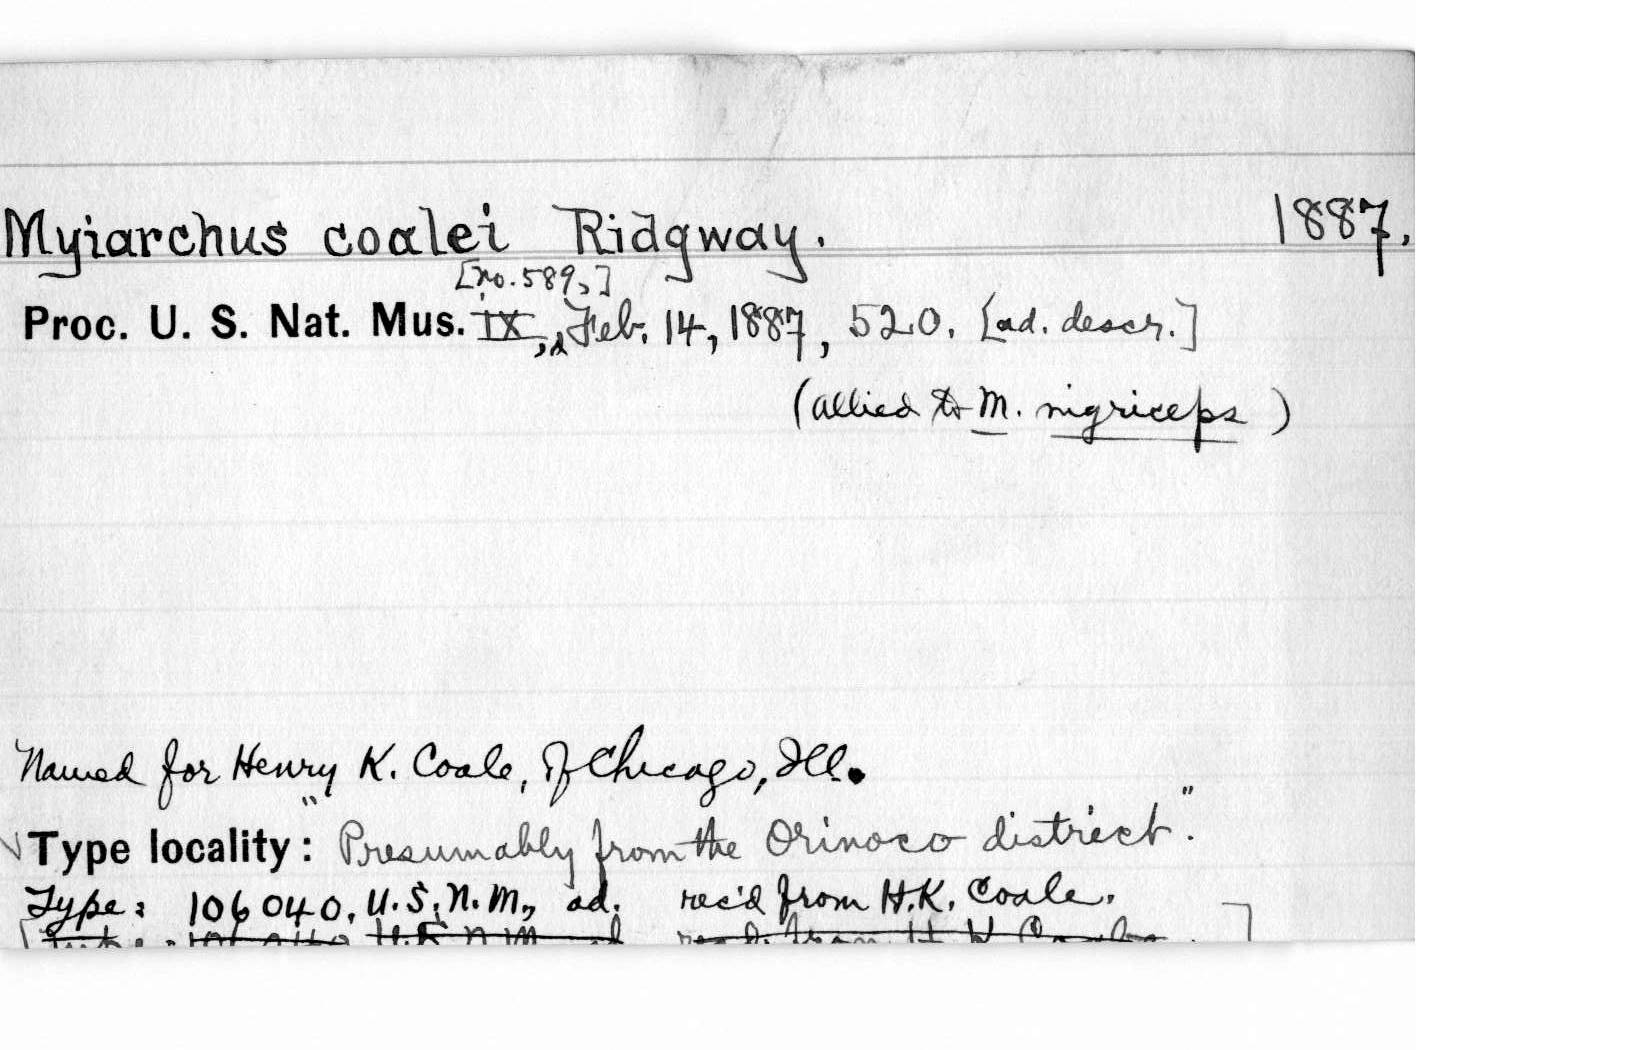 Myiarchus coalei Ridgway. 1887.
[no. 589,]
Proc. U. S. Nat. Mus. IX, Feb. 14, 1887, 520. [ad. descr.]
(allied to M. nigriceps)
Named for Henry K. Coale, of Chicago, Ill.
Type locality: "Presumably from the Orinoco district".
Type: 106040, U.S.N.M., ad. rec'd from H.K. Coale.